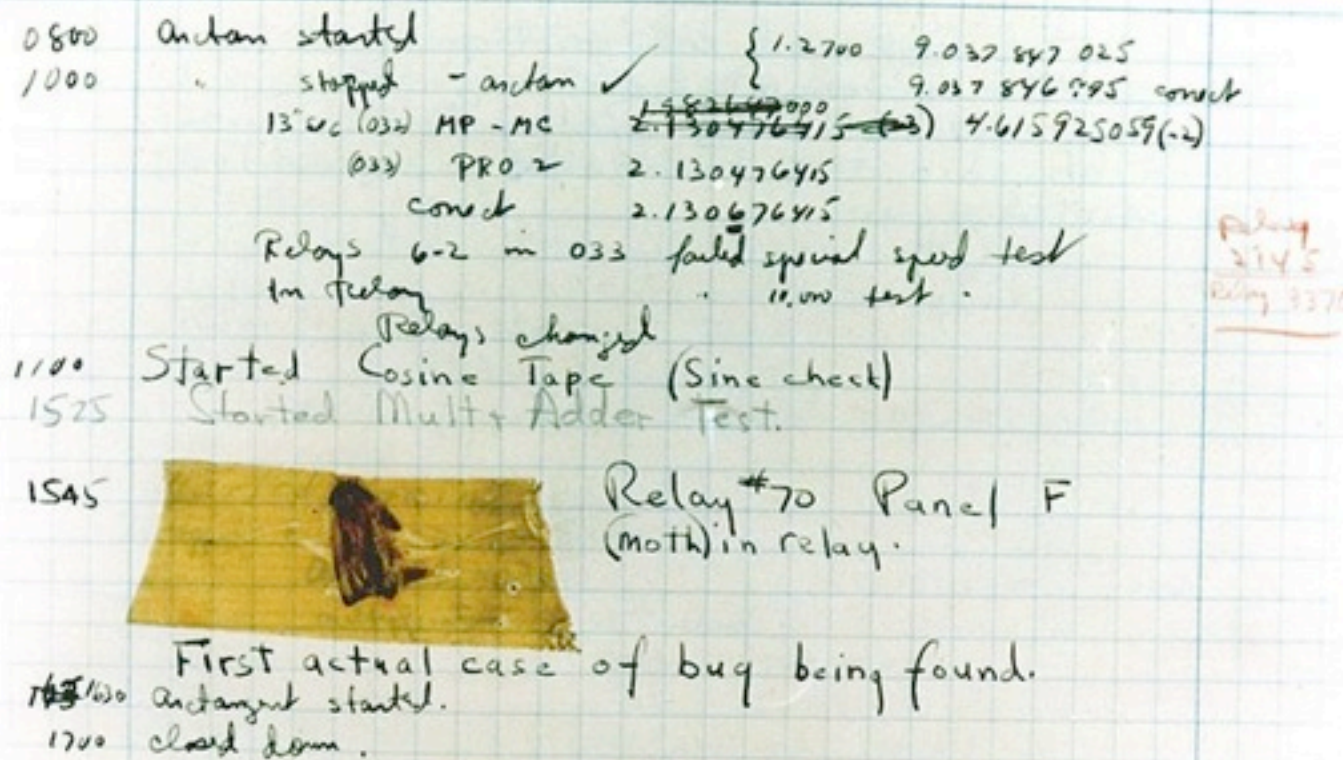 0800 Antan started
1000 " stopped - antan ✓ { 1.2700 9.037 847 025
9.037 846 995 correct
13"uc (032) MP - MC 2.130476415 (-3) 4.615925059(-2)
(033) PRO 2 2.130476415
correct 2.130676415
Relays 6-2 in 033 failed special speed test
In Relay " 10,000 test .
Relay
2145
Relay 337
Relays changed
1100 Started Cosine Tape (Sine check)
1525 Started Mult + Adder Test.
1545 Relay #70 Panel F
(moth) in relay.
First actual case of bug being found.
1630 Arctangent started.
1700 closed down.